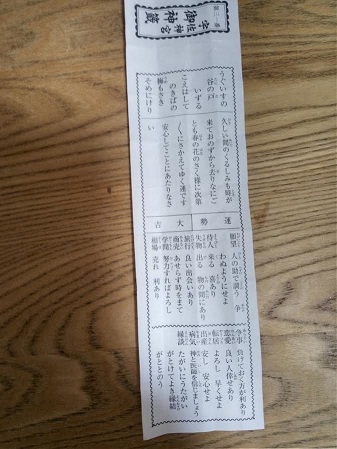 宇佐神宮
御神籤
うぐいすの
谷の戸
いずる
こえはして
のきばの
梅もさき
そめにけり
久しい間のくるしみも時が
来ておのずから去りなにご
とも春の花のさく様に次第
〳〵にさかえてゆく運です
安心してことにあたりなさ
い
運勢 大吉
願望 人の助で調う 争
わぬようにせよ
待人 来る 喜あり
失物 出る 物の間にあり
旅行 良い出会いあり
商売 あせらず時をまて
学問 努力すればよろし
相場 売れ 利あり
争事 負けておく方が利あり
恋愛 良い人伴せあり
転居 よろし 早くせよ
出産 安し 安心せよ
病気 神と医師を信じましょう
縁談 たがいにうたがい
がとけてよき縁結
がととのう